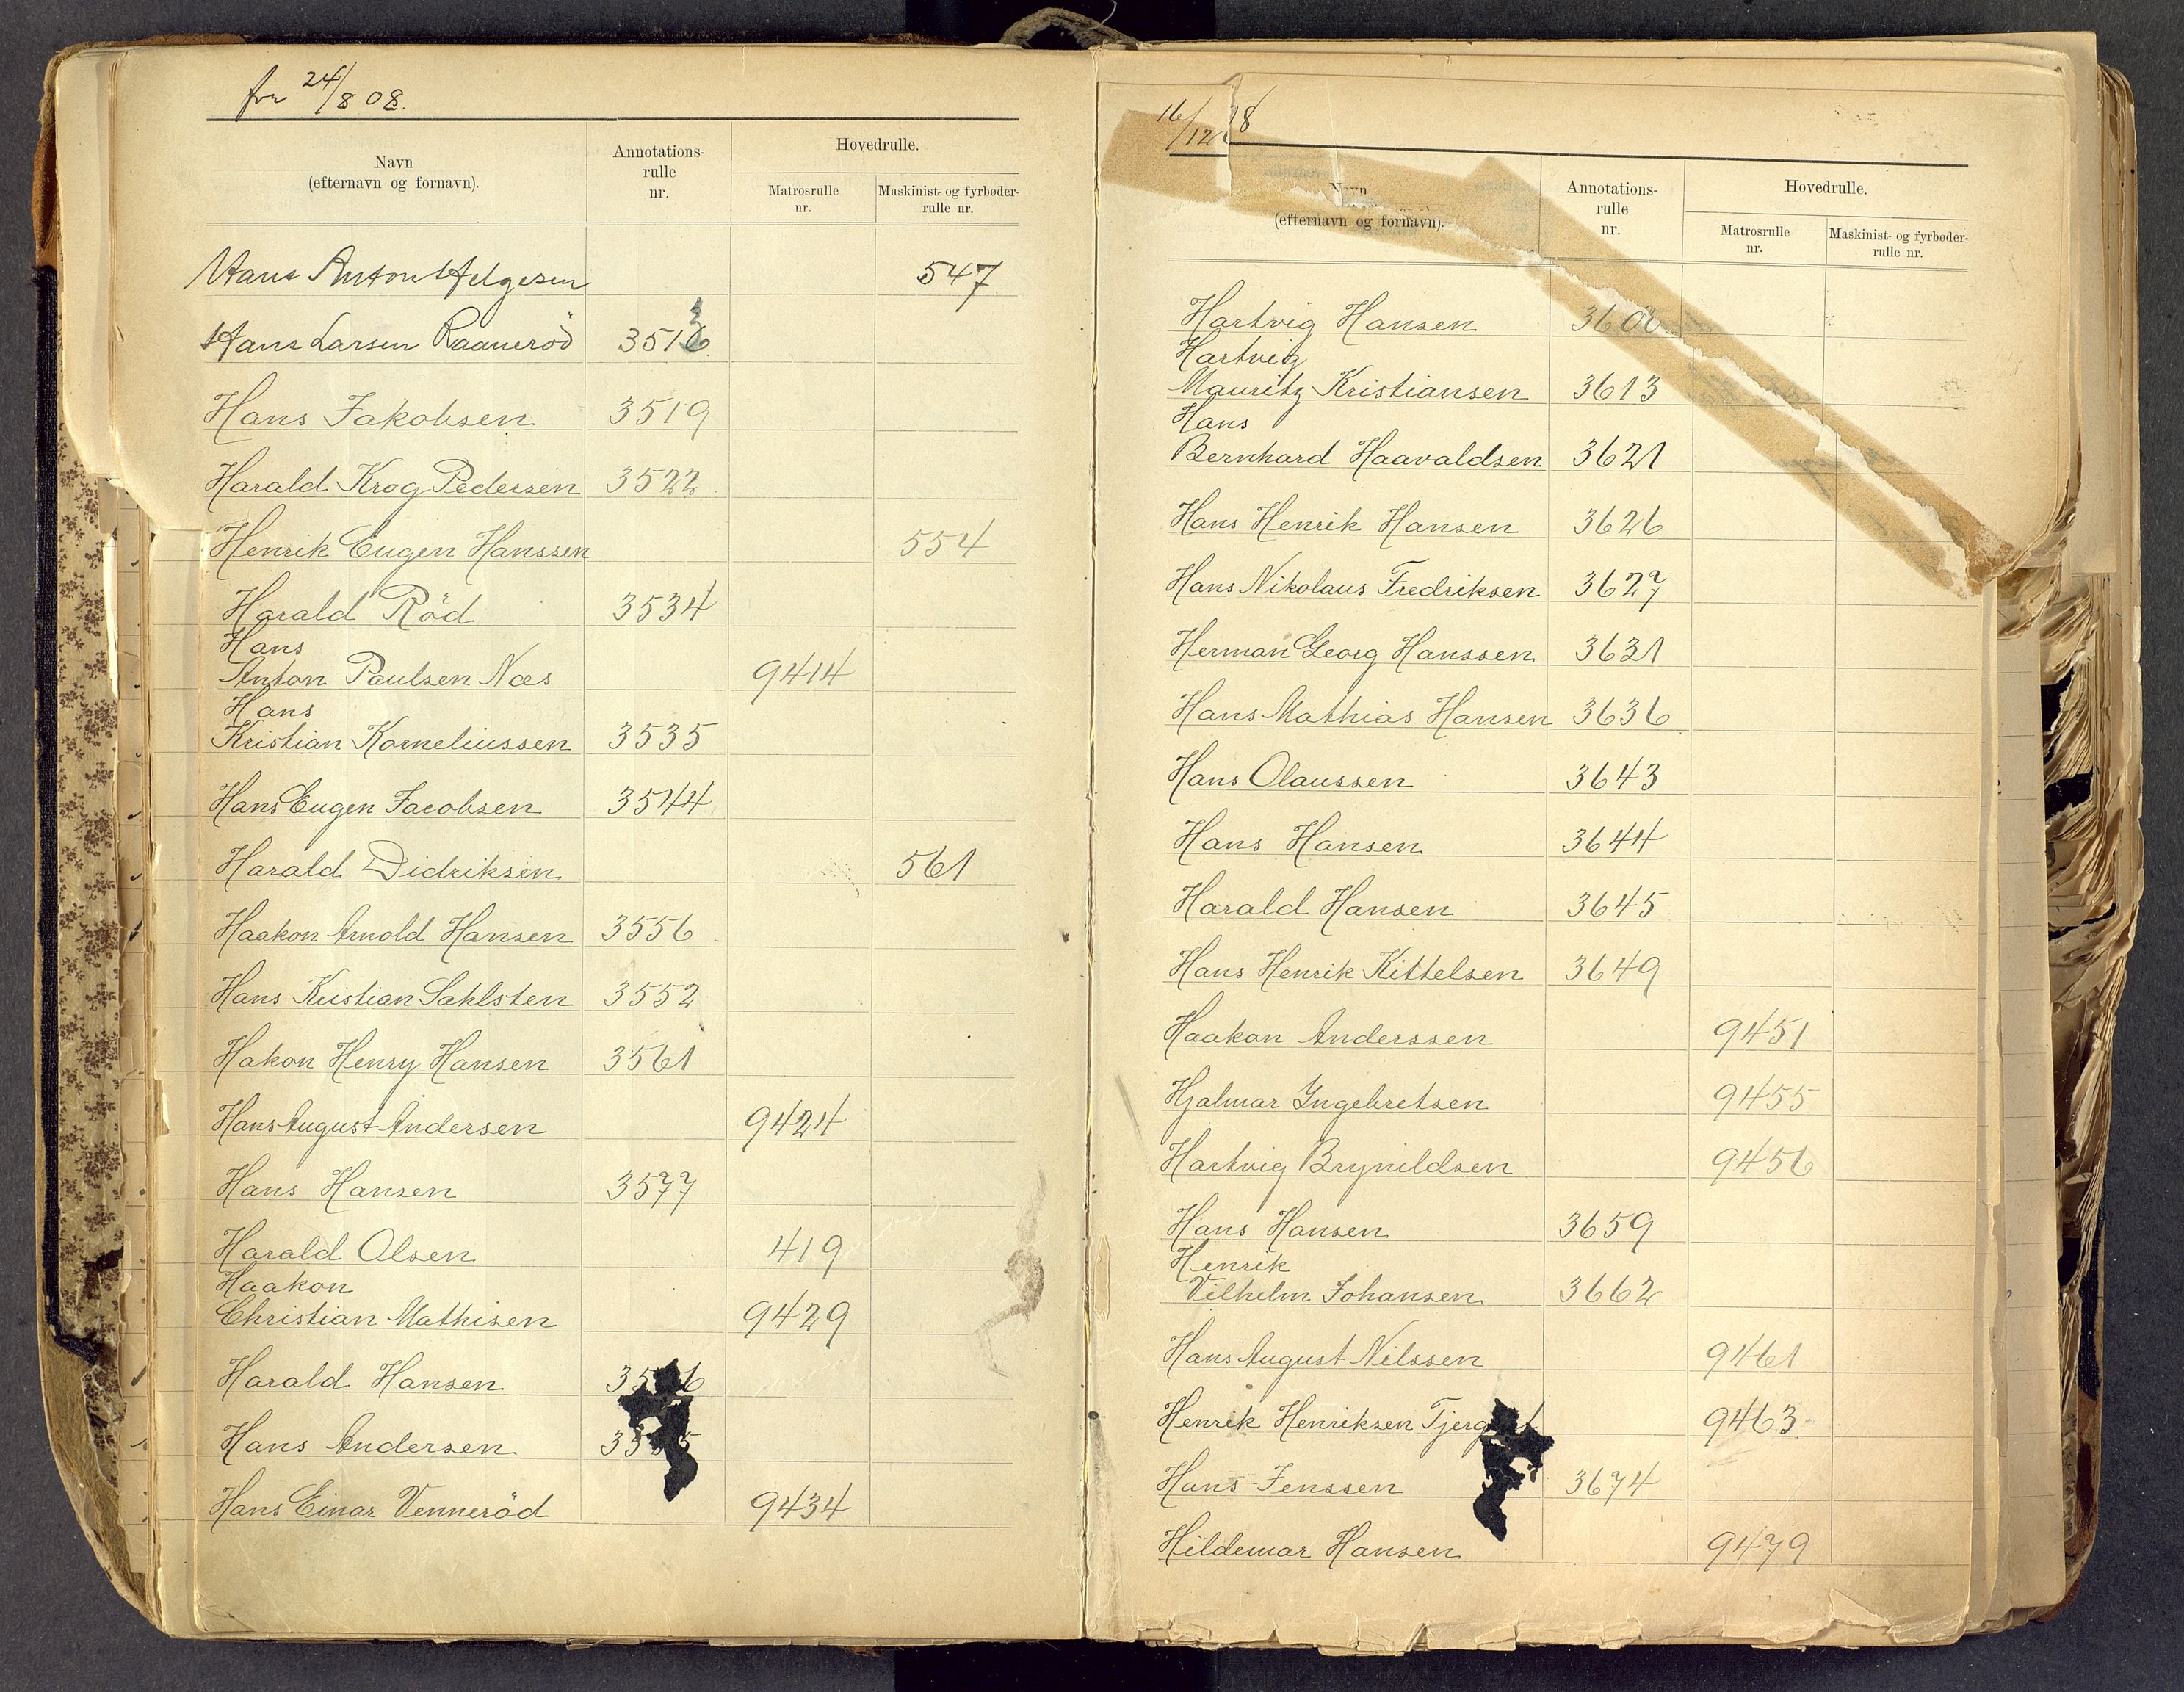 fra 24/8 08.
Navn
(efternavn og fornavn).
Annotations-
rulle
nr.
Hovedrulle.
Matrosrulle
nr.
Maskinist- og fyrbøder-
rulle nr.
Hans Anton Helgesen 547.
Hans Larsen Raanerød
Hans Jakobsen 3519
Harald Krog Pedersen 3522
Henrik Eugen Hanssen 554
Harald Röd 3534
Hans
Anton Paulsen Næs 9414
Hans
Kristian Korneliussen 3535
Hans Eugen Jacobsen 3544
Harald Didriksen 561
Haakon Arnold Hansen 3556
Hans Kristian Sahlsten 3552
Hakon Henry Hansen 3561
Hans August Andersen 9424
Hans Hansen 3577
Harald Olsen 419
Haakon
Christian Mathisen 9429
Harald Hansen
Hans Andersen
Hans Einar Venneröd 9434
16/12 8
Navn
(efternavn og fornavn).
Annotations-
rulle
nr.
Hovedrulle.
Matrosrulle
nr.
Maskinist- og fyrbøder-
rulle nr.
Hartvig Hansen
Hartvig
Mauritz Kristiansen 3613
Hans
Bernhard Haavaldsen 3621
Hans Henrik Hansen 3626
Hans Nikolaus Fredriksen 3627
Herman Georg Hanssen 3631
Hans Mathias Hansen 3636
Hans Olaussen 3643
Hans Hansen 3644
Harald Hansen 3645
Hans Henrik Kittelsen 3649
Haakon Anderssen 9451
Hjalmar Ingebretsen 9455
Hartvig Brynildsen 9456
Hans Hansen 3659
Henrik
Vilhelm Johansen 3662
Hans August Nilssen 9461
Henrik Henriksen 9463
Hans Jenssen 3674
Hildemar Hansen 9479